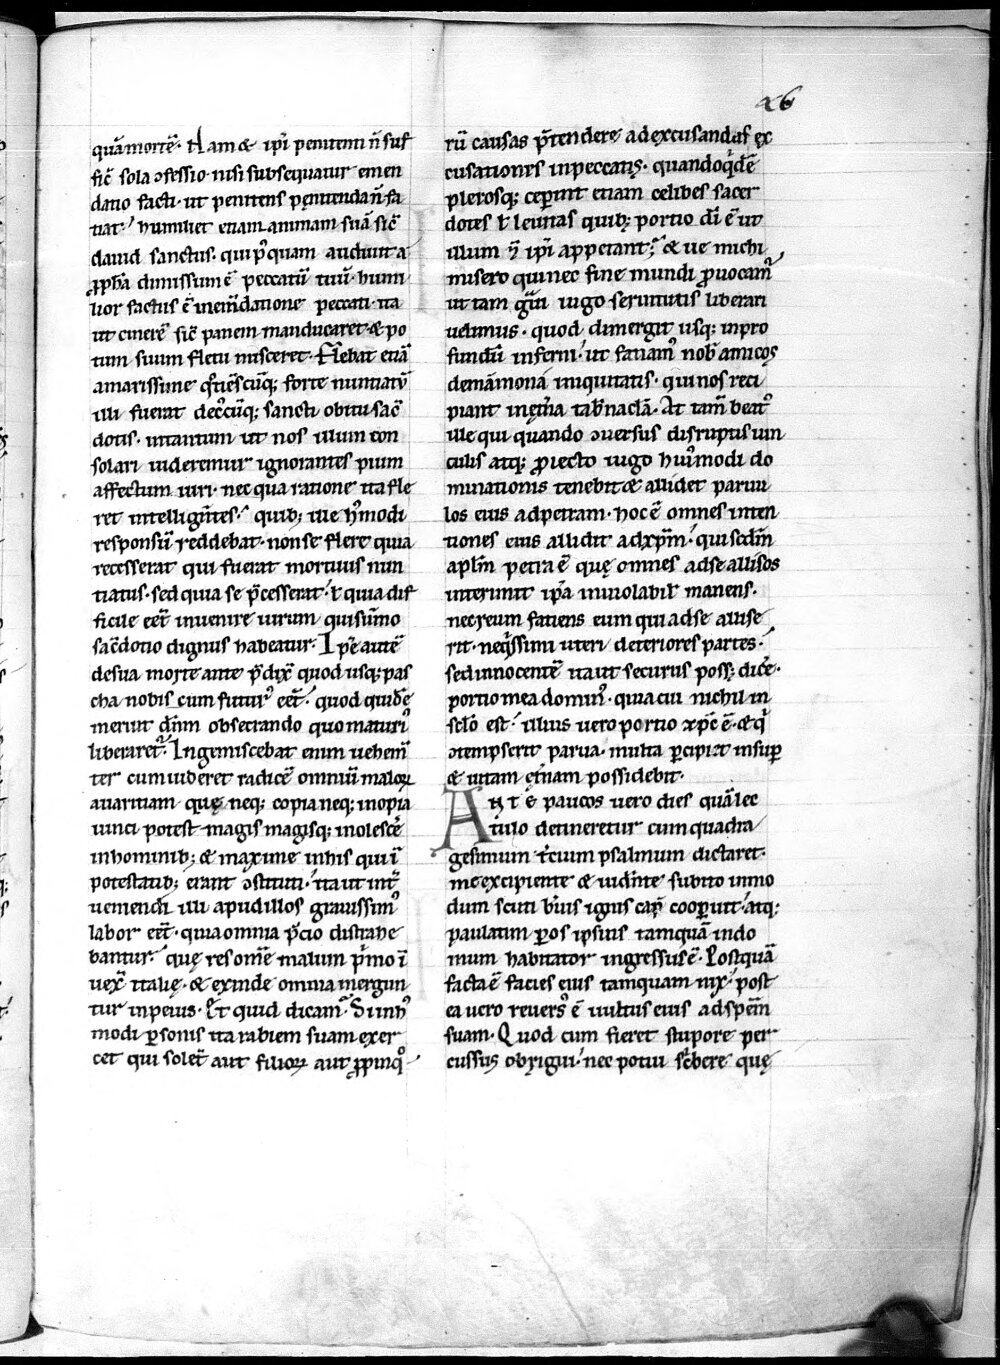 26
quā mortē. Nam & ipi penitenti n̄ suf
ficit sola ↄfessio nisi subsequatur emen
datio facti. ut penitens penitenda n̄ fa
tiat. humiliet etiam animam suā sic̄
dauid sanctus. qui pꝰquam audiuit a
ꝓph̄a dimissum ē peccatū tuū. humi
lior factus ē in em̄datione peccati. ita
ut cinerē sic̄ panem manducaret & po
tum suum fletu misceret. Flebat etiā
amarissime qͦtiēscūq; forte nuntiatū
illi fuerat de cꝰcūq; sancti obitu sac̄
dotis. intantum ut nos illum con
solari uideremur ignorantes pium
affectum uiri. nec qua ratione ita fle
ret intelligētes. quib; ille hꝰmodi
responsū reddebat. non se flere quia
recesserat qui fuerat mortuus nun
tiatus. sed quia se p̄cesserat. ł quia dif
ficile eēt inuenire uirum qui sūmo
sac̄dotio dignus habeatur. Ipse autē
de sua morte ante p̄dix̄ quod usq; pas
cha nobiscum futurꝰ eēt. quod quidē
meruit dn̄m obsecrando quo maturiꝰ
liberaret᷑. Ingemiscebat enim uehem̄
ter cum uideret radicē omniū maloꝝ
auaritiam que neq; copia neq; inopia
uinci potest magis magisq; inolescē
in hominib; & maxime in his qui ī
potestatib; erant ↄstituti. ita ut int̄
ueniendi illi apud illos grauissimꝰ
labor eēt. quia omnia p̄cio distrahe
bantur. que res omē malum pͥmo ī
uex̄ italie. & exinde omnia mergun
tur in peius. Et quid dicam. Si in hꝰ
modi ꝑsonis ita rabiem suam exer
cet qui solet aut filioꝝ aut ꝓpinqͦ
rū causas p̄tendere ad excusandas ex
cusationes in peccatis. quandoqͥdē
plerosq; ceperit etiam celibes sacer
dotes ł leuitas quib; portio dī ē ut
illum & ipi appetant; & ue michi
misero qui nec fine mundi ꝓuocamꝰ
ut tam gͣui iugo seruitutis liberari
uelimus. quod dimergit usq; in pro
fundū inferni. ut faciamꝰ nob̄ amicos
de māmona iniquitatis. qui nos reci
piant in et̄na tab̄nacla. At tam̄ beatꝰ
ille qui quando ↄuersus disruptis uin
culis atq; ꝓiecto iugo huiꝰmodi do
minationis tenebit & allidet paruu
los eius ad petram. hoc ē omnes inten
tiones eius allidit ad xp̄m. qui sc̄dm̄
aplm̄ petra ē que omnes ad se allisos
interimit ip̄a inuiolabil̄ manens.
nec reum fatiens eum qui ad se allise
rit. neqͥssim uteri deteriores partes.
sed innocentē ita ut securus poss; dice.
portio mea dominꝰ. quia cui nichil in
sclo est. illius uero portio xp̄c ē. & qͥ
ↄtempserit parua. multa ꝑcipiet insuꝑ
& uitam et̄nam possidebit.
Ante paucos uero dies quā lec
tulo detineretur cum quadra
gesimum t̄cium psalmum dictaret.
me excipiente & uidente subito in mo
dum scuti breuis ignis cap̄ cooperuit. atq;
paulatim ꝑ os ipsius tamquā in do
mum habitator ingressus ē. Postquā
facta ē facies eius tamquam nix. post
ea uero reuersꝰ ē uultus eius ad spem̄
suam. Quod cum fieret stupore per
cussus obrigui. nec potui sc̄bere que